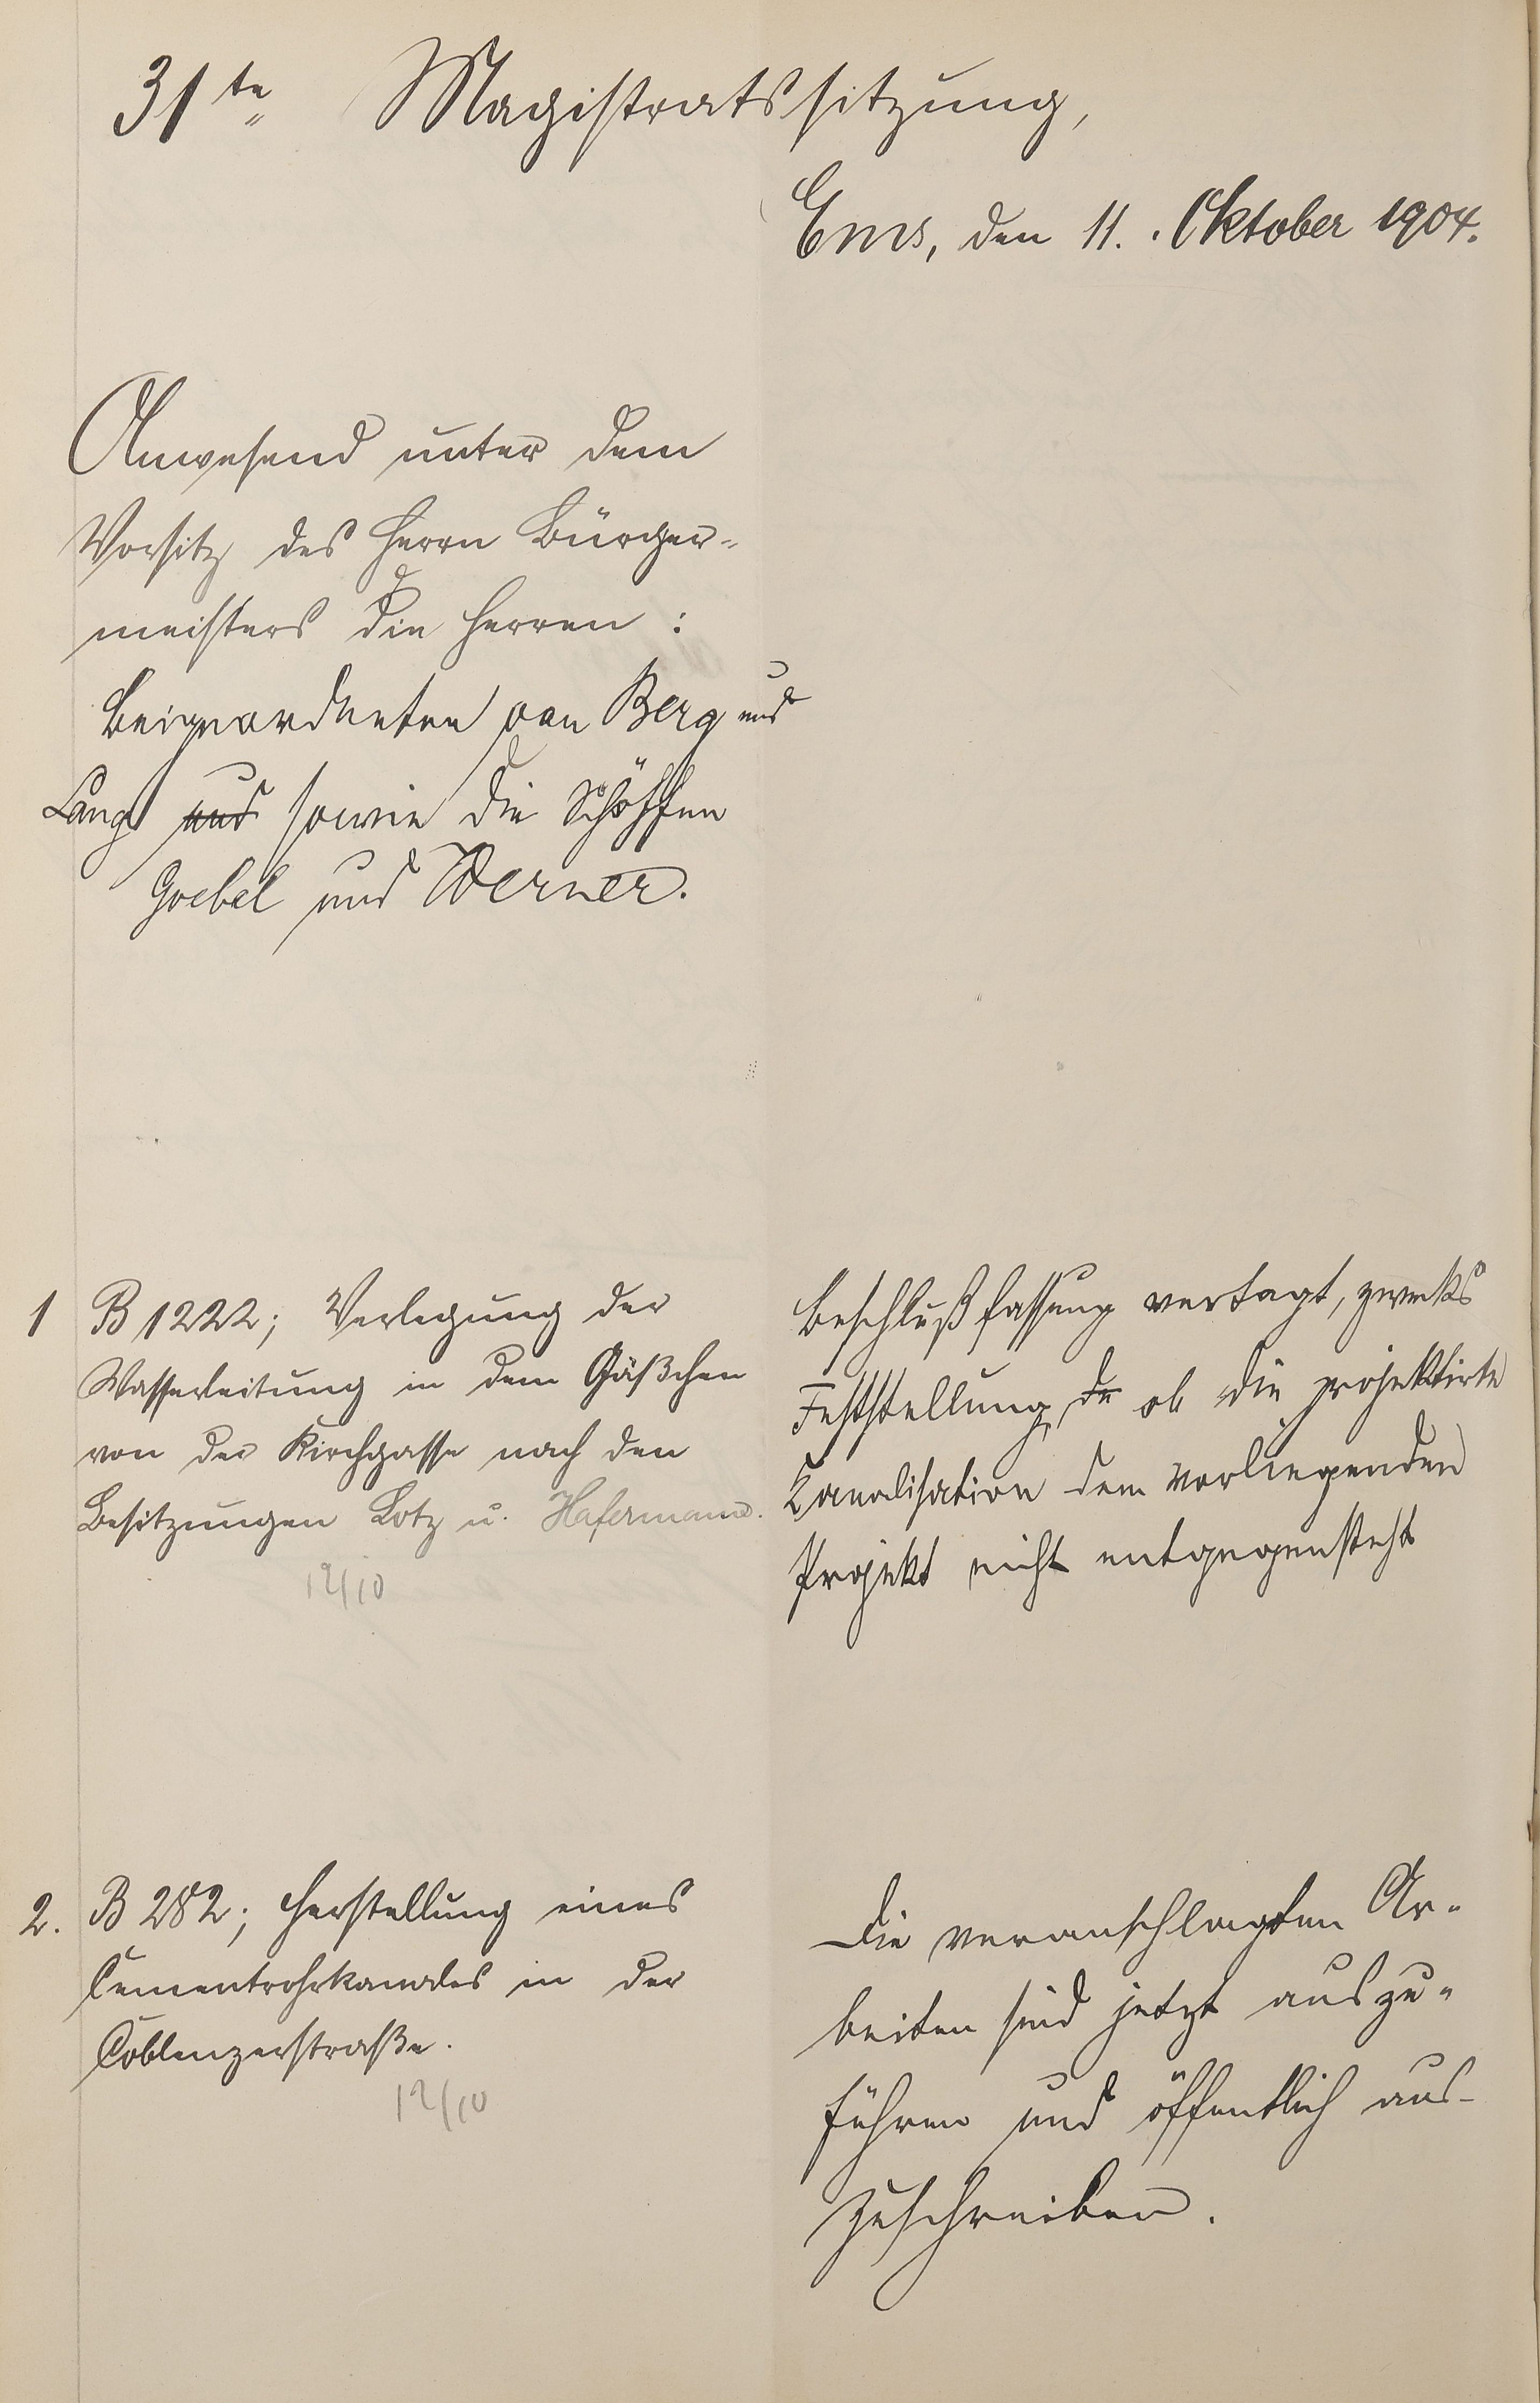 31te Magistratssitzung,
Ems, den 11. Oktober 1904.
Anwesend unter dem
Vorsitz des Herrn Bürger-
meisters die Herren:
Beigeordneten von Berg und
Lang und sowie die Schöffen
Goebel und Werner.
1 B 1222; Verlegung der
Wasserleitung in dem Gäßchen
von der Kirchgasse nach den
Besitzungen Lotz u. Hafermann.
12/10
Beschlußfassung vertagt, zwecks
Feststellung, de ob die projektirte
Kanalisation dem vorliegenden
Projekt nicht entgegensteht
2. B 282; Herstellung eines
Cementrohrkanales in der
Coblenzerstraße.
12/10
Die veranschlagten Ar-
beiten sind jetzt auszu-
führen und öffentlich aus-
zuschreiben.